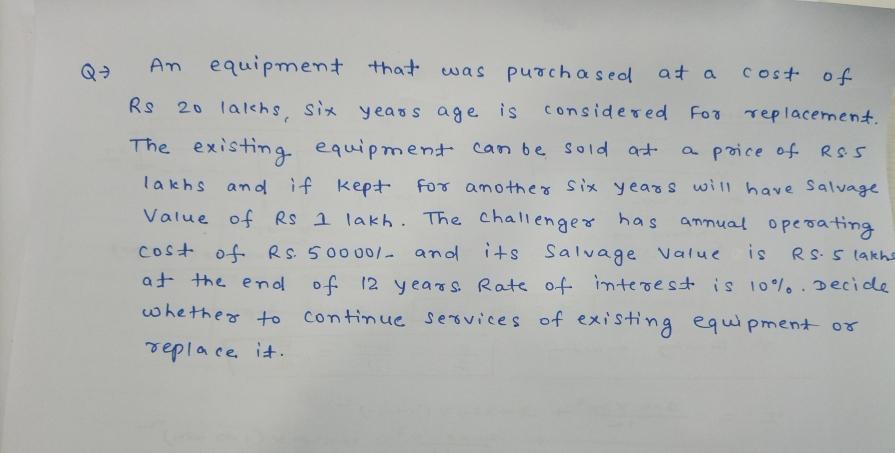 Q→ An equipment that was purchased at a cost of
Rs 20 lakhs, six years age is considered for replacement.
The existing equipment can be sold at a price of Rs.5
lakhs and if kept for another six years will have salvage
value of Rs 1 lakh. The challenger has annual operating
cost of Rs. 50000/- and its salvage value is Rs. 5 lakhs
at the end of 12 years. Rate of interest is 10%. Decide
whether to continue services of existing equipment or
replace it.